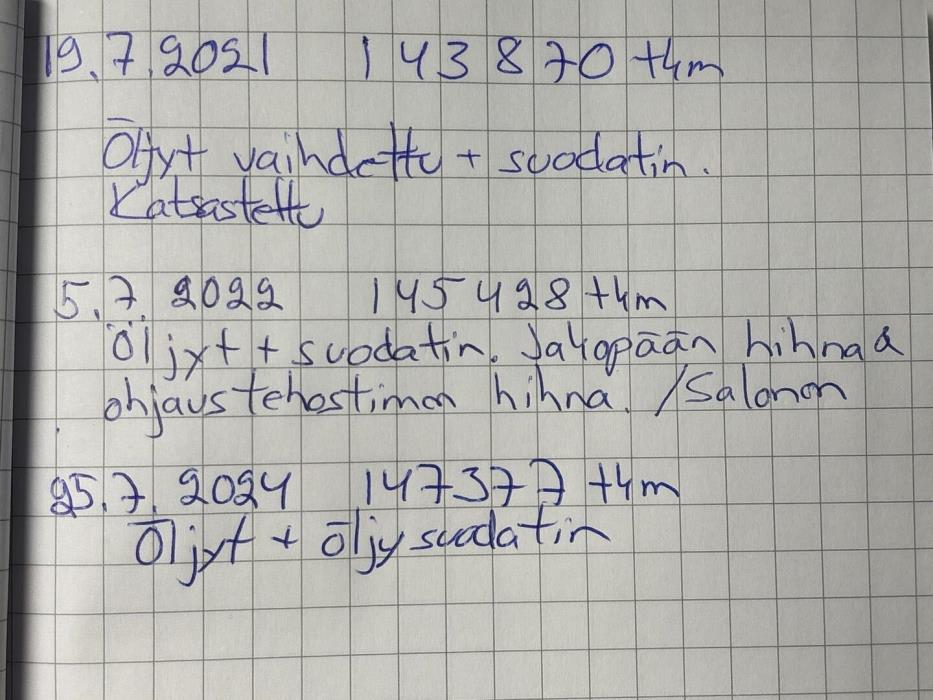 19.7.2021 143870 tkm
Öljyt vaihdettu + suodatin.
Katsastettu
5.7.2022 145428 tkm
Öljyt + suodatin. Jakopään hihna &
ohjaustehostimen hihna. /Salonen
25.7.2024 147377 tkm
Öljyt + öljysuodatin